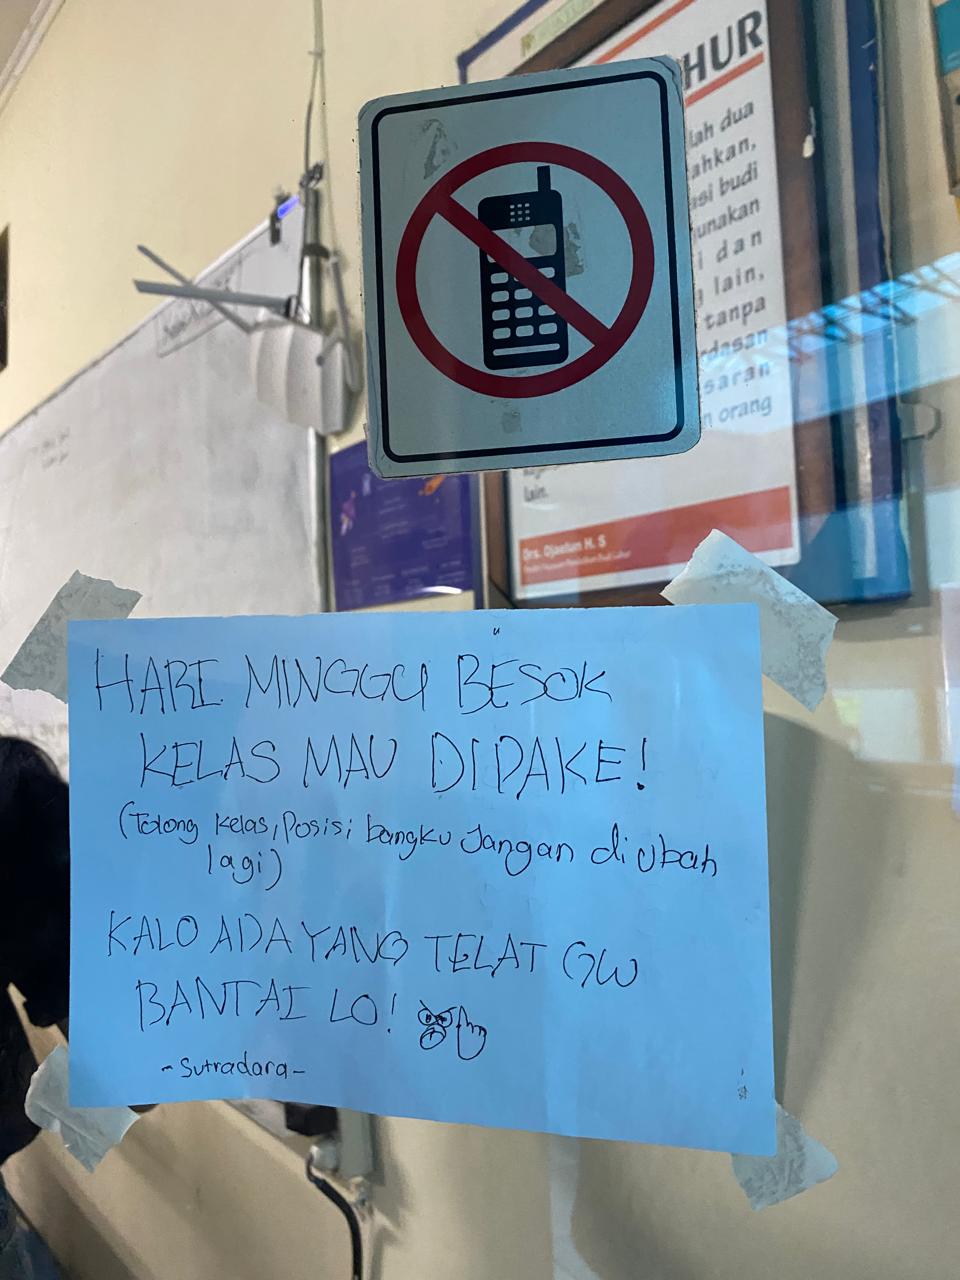 HUR
lah dua
ahkan,
asi budi
unakan
i dan
lain,
tanpa
rdasan
saran
n orang
lain.
Drs. Djaetun H. S
HARI MINGGU BESOK
KELAS MAU DIPAKE!
(Tolong kelas, Posisi bangku Jangan di ubah
lagi)
KALO ADA YANG TELAT GW
BANTAI LO!
- Sutradara -